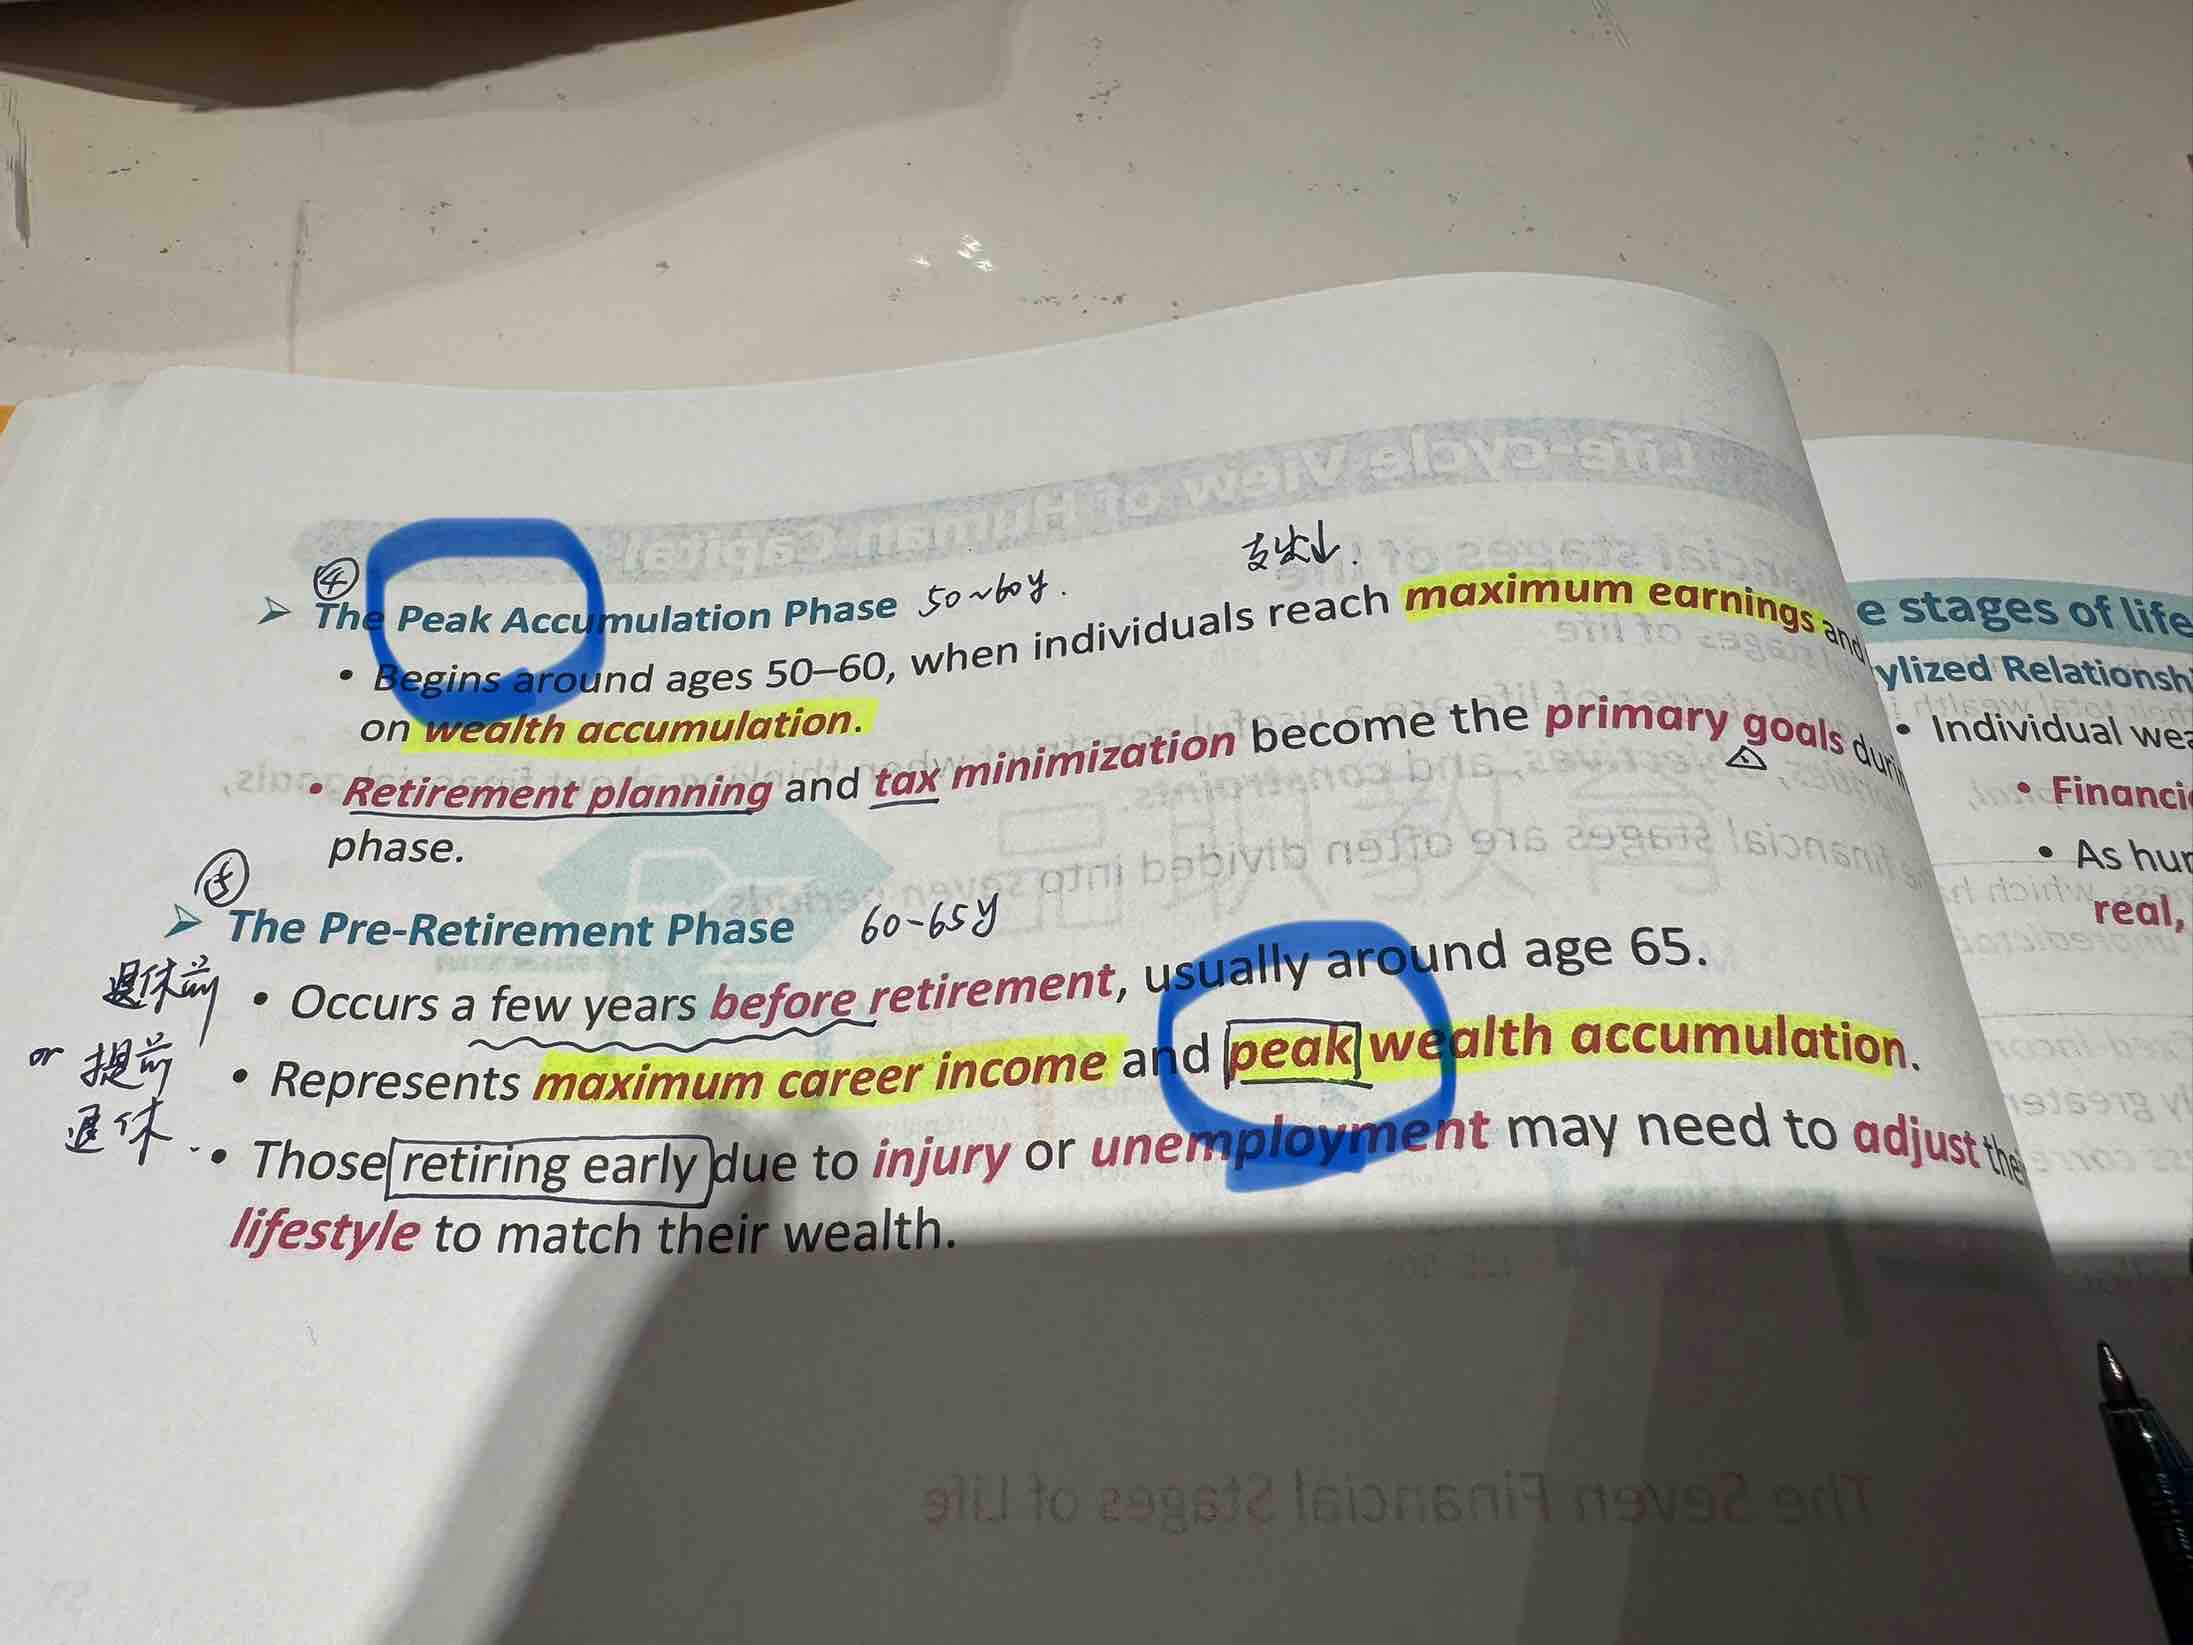 Life-cycle View of Human Capital
④ 支出↓.
The Peak Accumulation Phase 50~60y.
• Begins around ages 50–60, when individuals reach maximum earnings and
on wealth accumulation.
• Retirement planning and tax minimization become the primary goals durin
phase.
⑤
The Pre-Retirement Phase 60-65y
退休前
• Occurs a few years before retirement, usually around age 65.
or 提前
退休
• Represents maximum career income and peak wealth accumulation.
• Those retiring early due to injury or unemployment may need to adjust thei
lifestyle to match their wealth.
The Seven Financial Stages of Life
e stages of life
ylized Relationsh
• Individual wea
• Financi
• As hur
real,